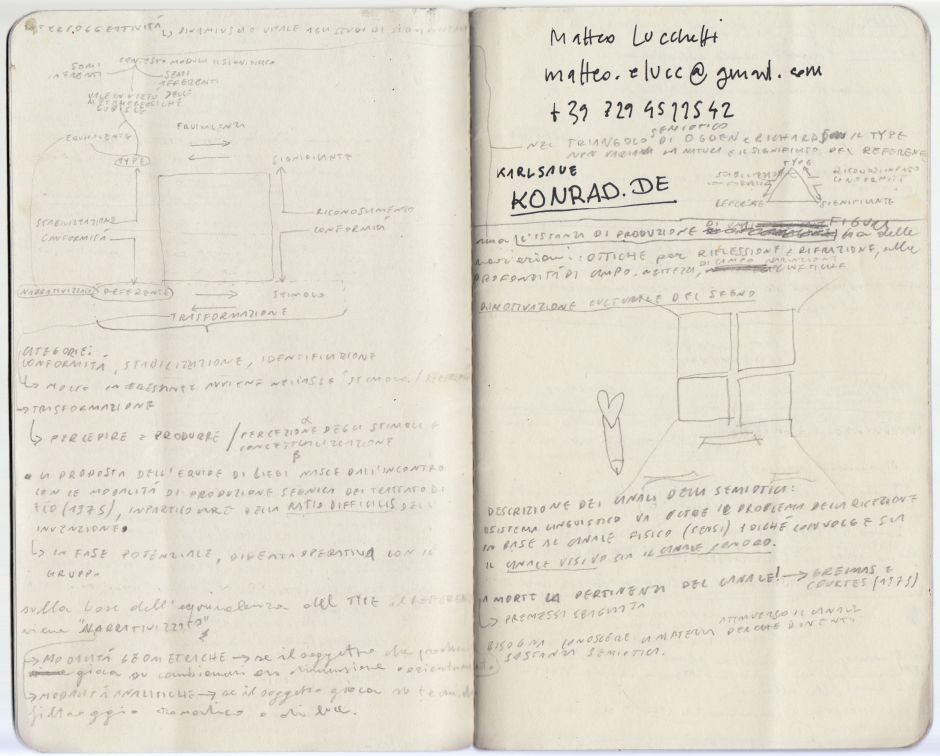 INTERSOGGETTIVITÁ
SEMI
AFFERENTI
SEMI
AFFERENTI
EQUIVALENTE
TYPE
EQUIVALENZA
SIGNIFICANTE
STABILIZZAZIONE
CONFORMITÁ
RICONOSCIMENTO
CONFORMITÁ
NARRATIVIZZATO REFERENTE
STIMOLO
TRASFORMAZIONE
CATEGORIE:
CONFORMITÁ, STABILIZZAZIONE, IDENTIFICAZIONE
MOLTO INTERESSANTE AVVIENE NELL'ASSE STIMOLO /
TRASFORMAZIONE
PERCEPIRE E PRODURRE / PERCEZIONE DEGLI STIMOLI E
α
CONCETTUALIZZAZIONE
β
LA PROPOSTA DELL'EQUIPE DI LIEGI NASCE DALL'INCONTRO
CON LE MODALITÁ DI PRODUZIONE SEGNICA DEL TRATTATO DI
ECO (1975), IN PARTICOLARE DELLA RATIO DIFFICILIS DELL'
INVENZIONE
IN FASE POTENZIALE, DIVENTA OPERATIVA CON IL
GRUPPO
sulla base dell'equivalenza del TYPE il REFERENTE
viene "NARRATIVIZZATO"
MODALITÁ GEOMETRICHE → se il soggetto che produce
gioca su combinazioni dimensione e orientamento
MODALITÁ ANALITICHE → se il soggetto gioca su
filtraggio cromatico o di luce.
Matteo Lucchetti
matteo.elucc@gmail.com
+39 329 4512542
NEL TRIANGOLO SEMIOTICO DI OGDEN E RICHARDS IL TYPE
NON VARIAVA LA NATURA E IL SIGNIFICATO DEL REFERENTE
KARLSRUE
KONRAD.DE
TYPE
STABILIZZAZIONE
CONFORMITÁ
RICONOSCIMENTO
CONFORMITÁ
REFERENTE
SIGNIFICANTE
L'ISTANZA DI PRODUZIONE DI FIGURE delle
variazioni: OTTICHE per RIFLESSIONE e RIFRAZIONE, alla
PROFONDITÁ DI CAMPO, NITIDEZZA,
DI CAMPO VARIAZIONI
DIMOTIVAZIONE CULTURALE DEL SEGNO
DESCRIZIONE DEI CANALI DELLA SEMIOTICA:
IL SISTEMA LINGUISTICO VA OLTRE IL PROBLEMA DELLA RICEZIONE
IN BASE AL CANALE FISICO (SENSI) POICHÉ COINVOLGE SIA
IL CANALE VISIVO SIA IL CANALE SONORO.
A MORTE LA PERTINENZA DEL CANALE! → GREIMAS E
COURTES (1979)
PREMESSA SBAGLIATA
BISOGNA CONOSCERE LA MATERIA PERCHÉ DIVENTI
ATTRAVERSO IL CANALE
SOSTANZA SEMIOTICA.